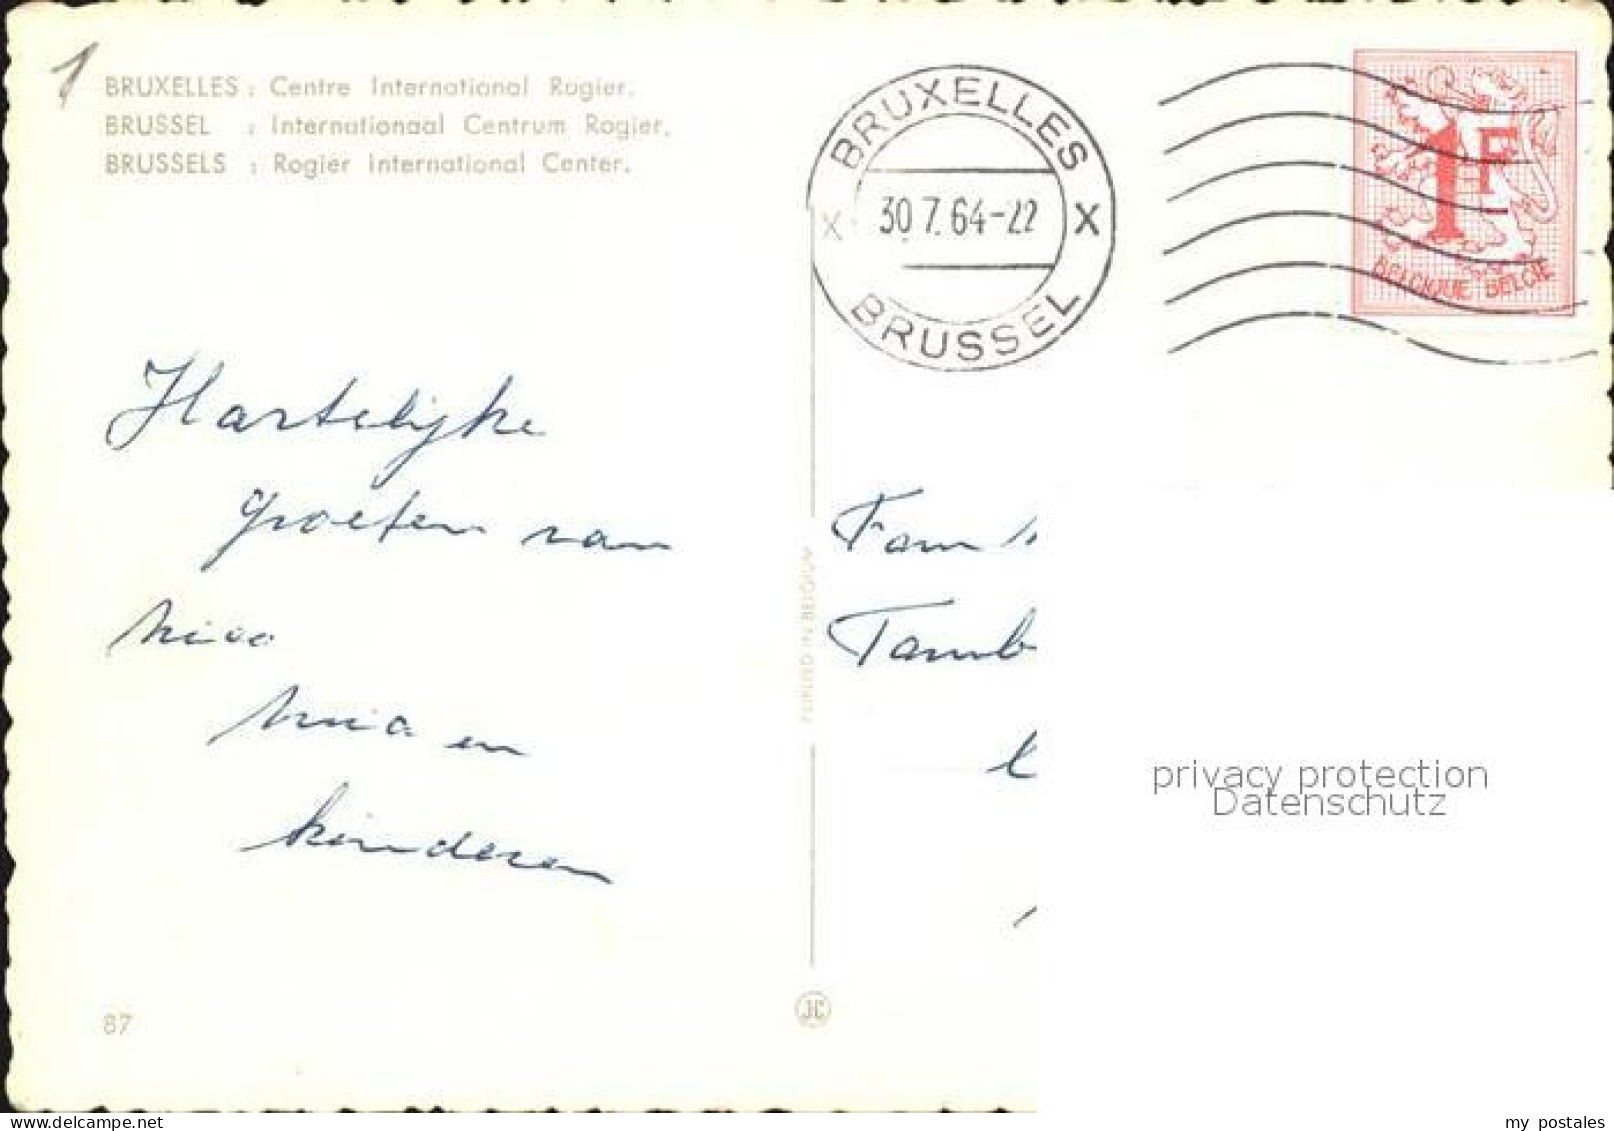 1
BRUXELLES : Centre International Rogier.
BRUSSEL : Internationaal Centrum Rogier.
BRUSSELS : Rogier International Center.
BRUXELLES
X 30.7.64-22 X
BRUSSEL
1F
BELGIQUE BELGIE
Hartelijke
groeten van
mia en
kinderen
Fam
Tamb
PUBLISD IN BELGIUM
privacy protection
Datenschutz
87
JC
delcampe.net
my postales